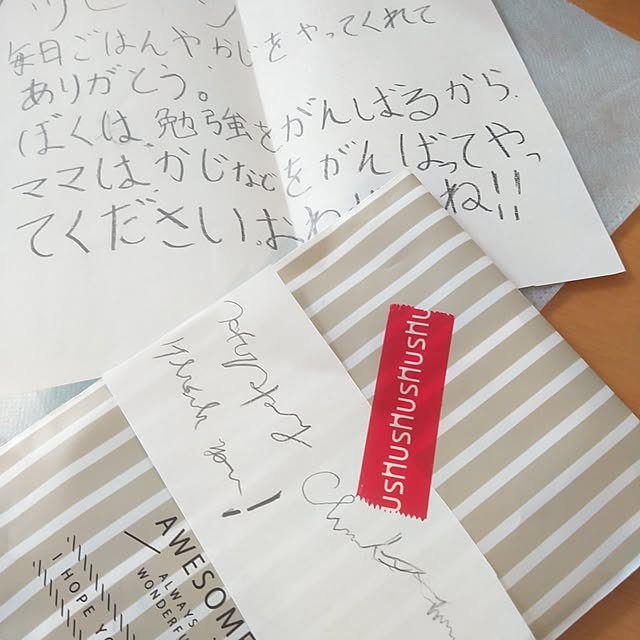 毎日ごはんやかじをやってくれて
ありがとう。
ぼくは勉強をがんばるから
ママは、かじなどをがんばってやっ
てください。おわ ね!!
you!
USHUSHUSHUSHU
AWESOME
ALWAYS
WONDERFU
I HOPE YO